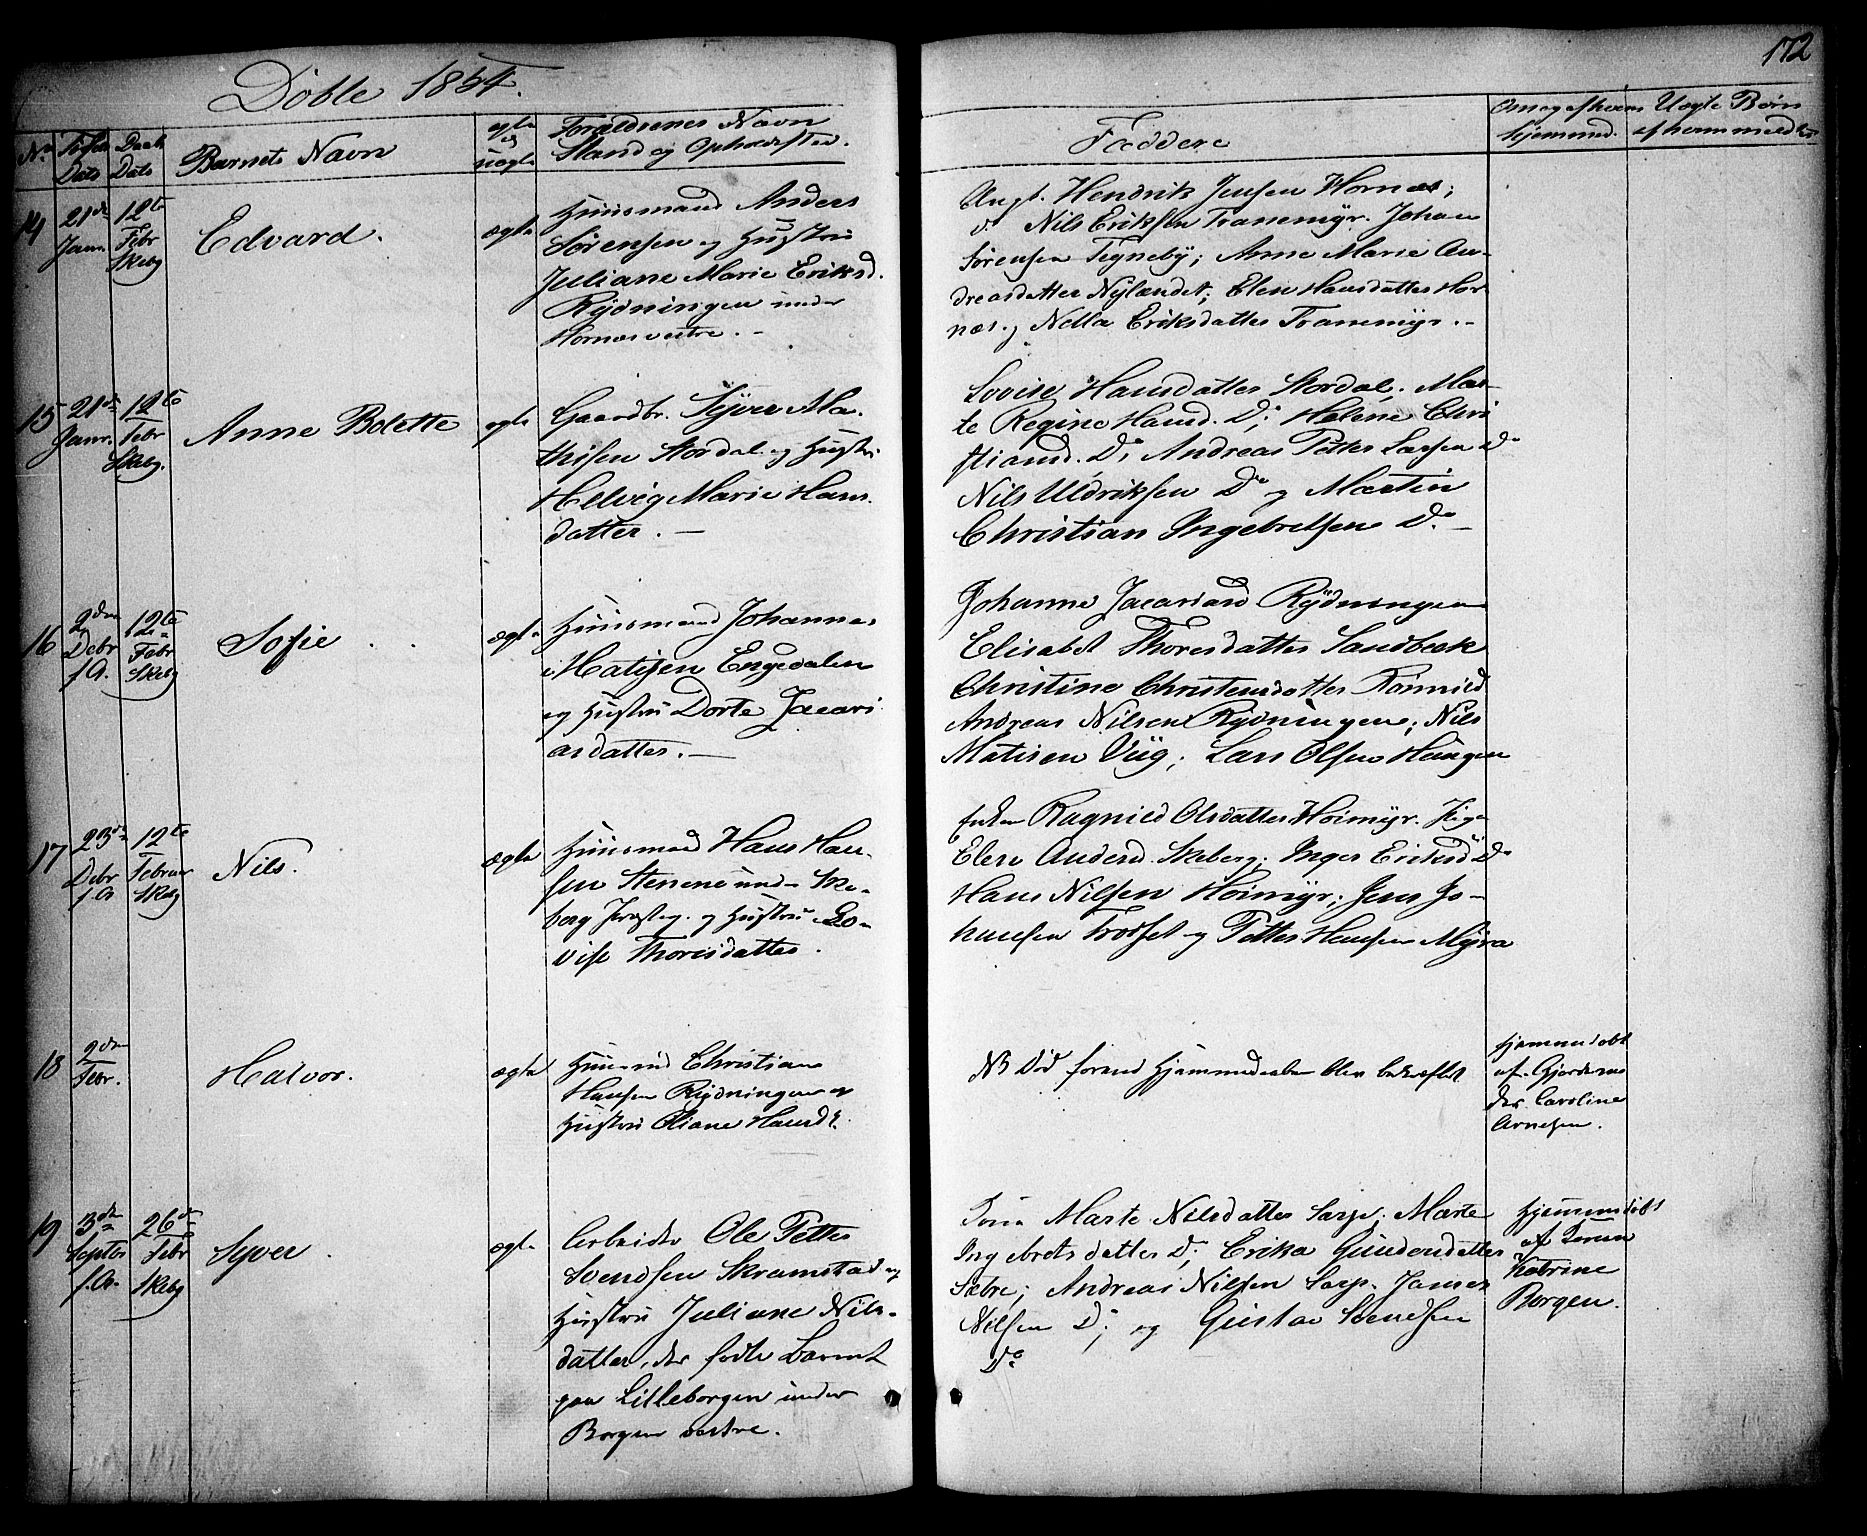 172
Döbte 1854.
No Födsels Dato
Daabs Dato
Barnets Navn
ægte og uægte
Forældrenes Navn
Stand og Opholdsted.
Faddere
Om og af hvem
hjemmed.
Uægte Børn
af hvem meldt
14
21de
Janr.
12te
Febr
Skbg
Edvard.
ægte
Huusmand Anders
Sörensen og Hustru
Juliane Marie Eriksd.
Rydningen under
Hornæs vestre. -
Ungk. Hendrik Jensen Hornæs;
do Nils Eriksen Tranemyr. Johan
Sörensen Tegneby; Anne Marie An-
dreasdatter Nylændet; Elen Hansdatter Hor-
næs og Nella Eriksdatter Tranemyr. -
15
21de
Janr.
12te
Febr
Skebg.
Anne Bolette
ægte
Gaardbr. Syver Ma-
thisen Stordal og Hustru
Helvig Marie Hans-
datter. -
Lovise Hansdatter Stordal. Mar-
te Regine Hansd. Do; Helene Chri
stiansd. Do, Andreas Petter Larsen Do
Nils Uldriksen Do og Martin
Christian Ingebretsen Do -
16
2den
Debr
f. A.
12te
Febr
Skebg
Sofie
ægte
Huusmand Johannes
Matisen Engedalen
og Hustru Dorte Jacari
asdatter. -
Johanne Jacariasd Rydningen
Elisabet Thoresdatter Sandbæk
Christine Christensdatter Rönnild
Andreas Nilsen Rydningen; Nils
Matisen Viig; Lars Olsen Haugen
17
23de
Debr
f. A
12te
Februar
Skebg
Nils.
ægte
Huusmand Hans Han-
sen Stenene und. Ske-
berg Præsteg. og Hustru Lo-
vise Thorisdatter.
Enken Ragnild Olsdatter Hoimyr. Pige
Elen Andersd. Skeberg; Inger Eriksd Do
Hans Nilsen Hoimyr; Jens Jo-
hansen Trosset og Petter Hansen Myra
18
2den
Febr.
Halvor.
ægte
Huusmd Christian
Hansen Rydningen og
Hustru Oliane Hansd.
NB Död forend Hjemmedaaben blev bekræftet
hjemmedöbt
af Gjorde-
der Caroline
Arnesen.
19
3de
Septbr
f. A.
26de
Febr
Skebg
Syver.
ægte
Arbeider Ole Petter
Svendsen Skramstad og
Hustru Juliane Nils-
datter, der fødte Barnet
paa Lilleborgen under
Borgen vestre.
Marte Nilsdatter Sarp; Marte
Ingebretsdatter Do; Erika Gundersdatter
Sæbre; Andreas Nilsen Sarp. Janses
Nilsen Do; og Gustav Svendsen
Do
Hjemmedöbt
af Jomfru
Katrine
Borgen.